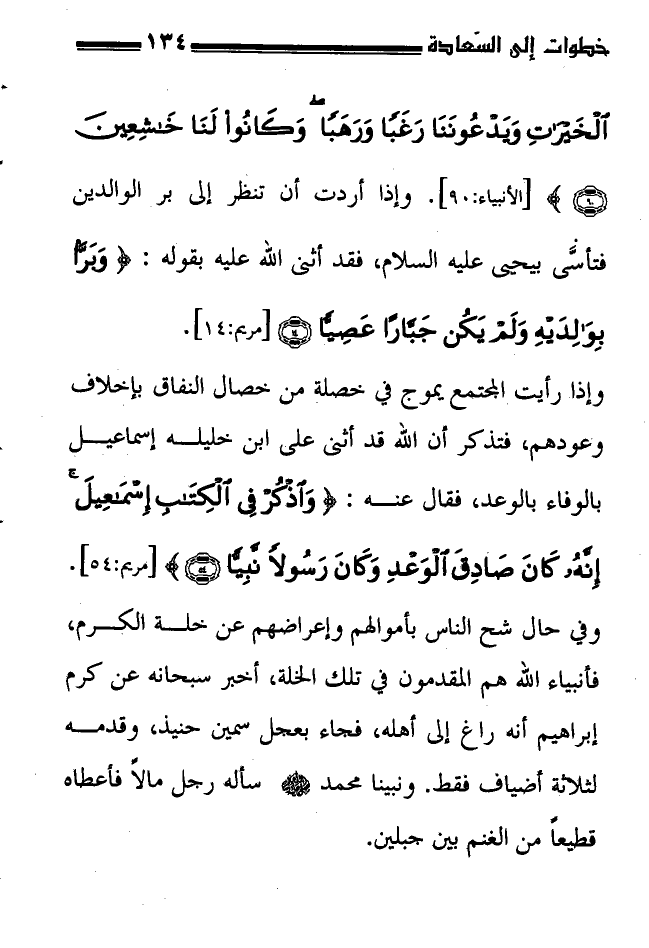 خطوات إلى السَّعادة ١٣٤
ٱلْخَيْرَٰتِ وَيَدْعُونَنَا رَغَبًا وَرَهَبًا ۖ وَكَانُوا۟ لَنَا خَـٰشِعِينَ
﴿٩٠﴾ [الأنبياء:٩٠]. وإذا أردت أن تنظر إلى بر الوالدين
فتأسَّى بيحيى عليه السلام، فقد أثنى الله عليه بقوله : ﴿ وَبَرًّۢا
بِوَٰلِدَيْهِ وَلَمْ يَكُن جَبَّارًا عَصِيًّا ﴿١٤﴾ [مريم:١٤].
وإذا رأيت المجتمع يموج في خصلة من خصال النفاق بإخلاف
وعودهم، فتذكر أن الله قد أثنى على ابن خليله إسماعيل
بالوفاء بالوعد، فقال عنه : ﴿ وَٱذْكُرْ فِى ٱلْكِتَـٰبِ إِسْمَـٰعِيلَ ۚ
إِنَّهُۥ كَانَ صَادِقَ ٱلْوَعْدِ وَكَانَ رَسُولًا نَّبِيًّا ﴿٥٤﴾ ﴾ [مريم:٥٤].
وفي حال شح الناس بأموالهم وإعراضهم عن خلة الكرم،
فأنبياء الله هم المقدمون في تلك الخلة، أخبر سبحانه عن كرم
إبراهيم أنه راغ إلى أهله، فجاء بعجل سمين حنيذ، وقدمه
لثلاثة أضياف فقط. ونبينا محمد ﷺ سأله رجل مالاً فأعطاه
قطيعاً من الغنم بين جبلين.